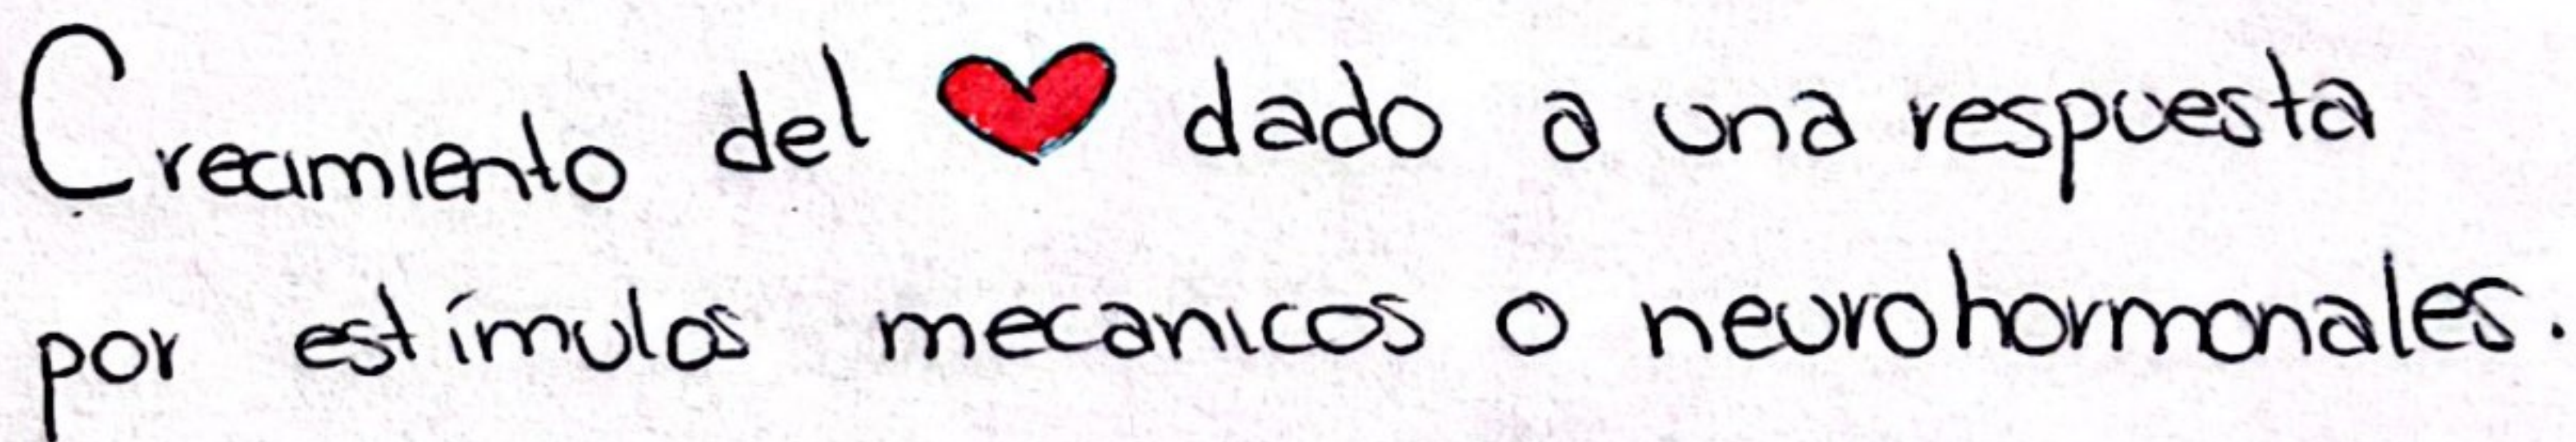 Crecimiento del ❤️ dado a una respuesta
por estímulos mecanicos o neurohormonales.